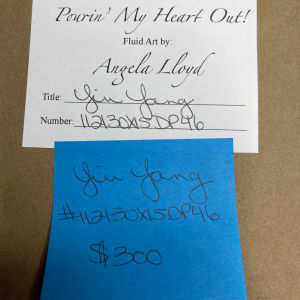 Pourin' My Heart Out!
Fluid Art by:
Angela Lloyd
Title: Yin Yang
Number: 112130X15DP46
Yin Yang
#112130X15DP46
$300